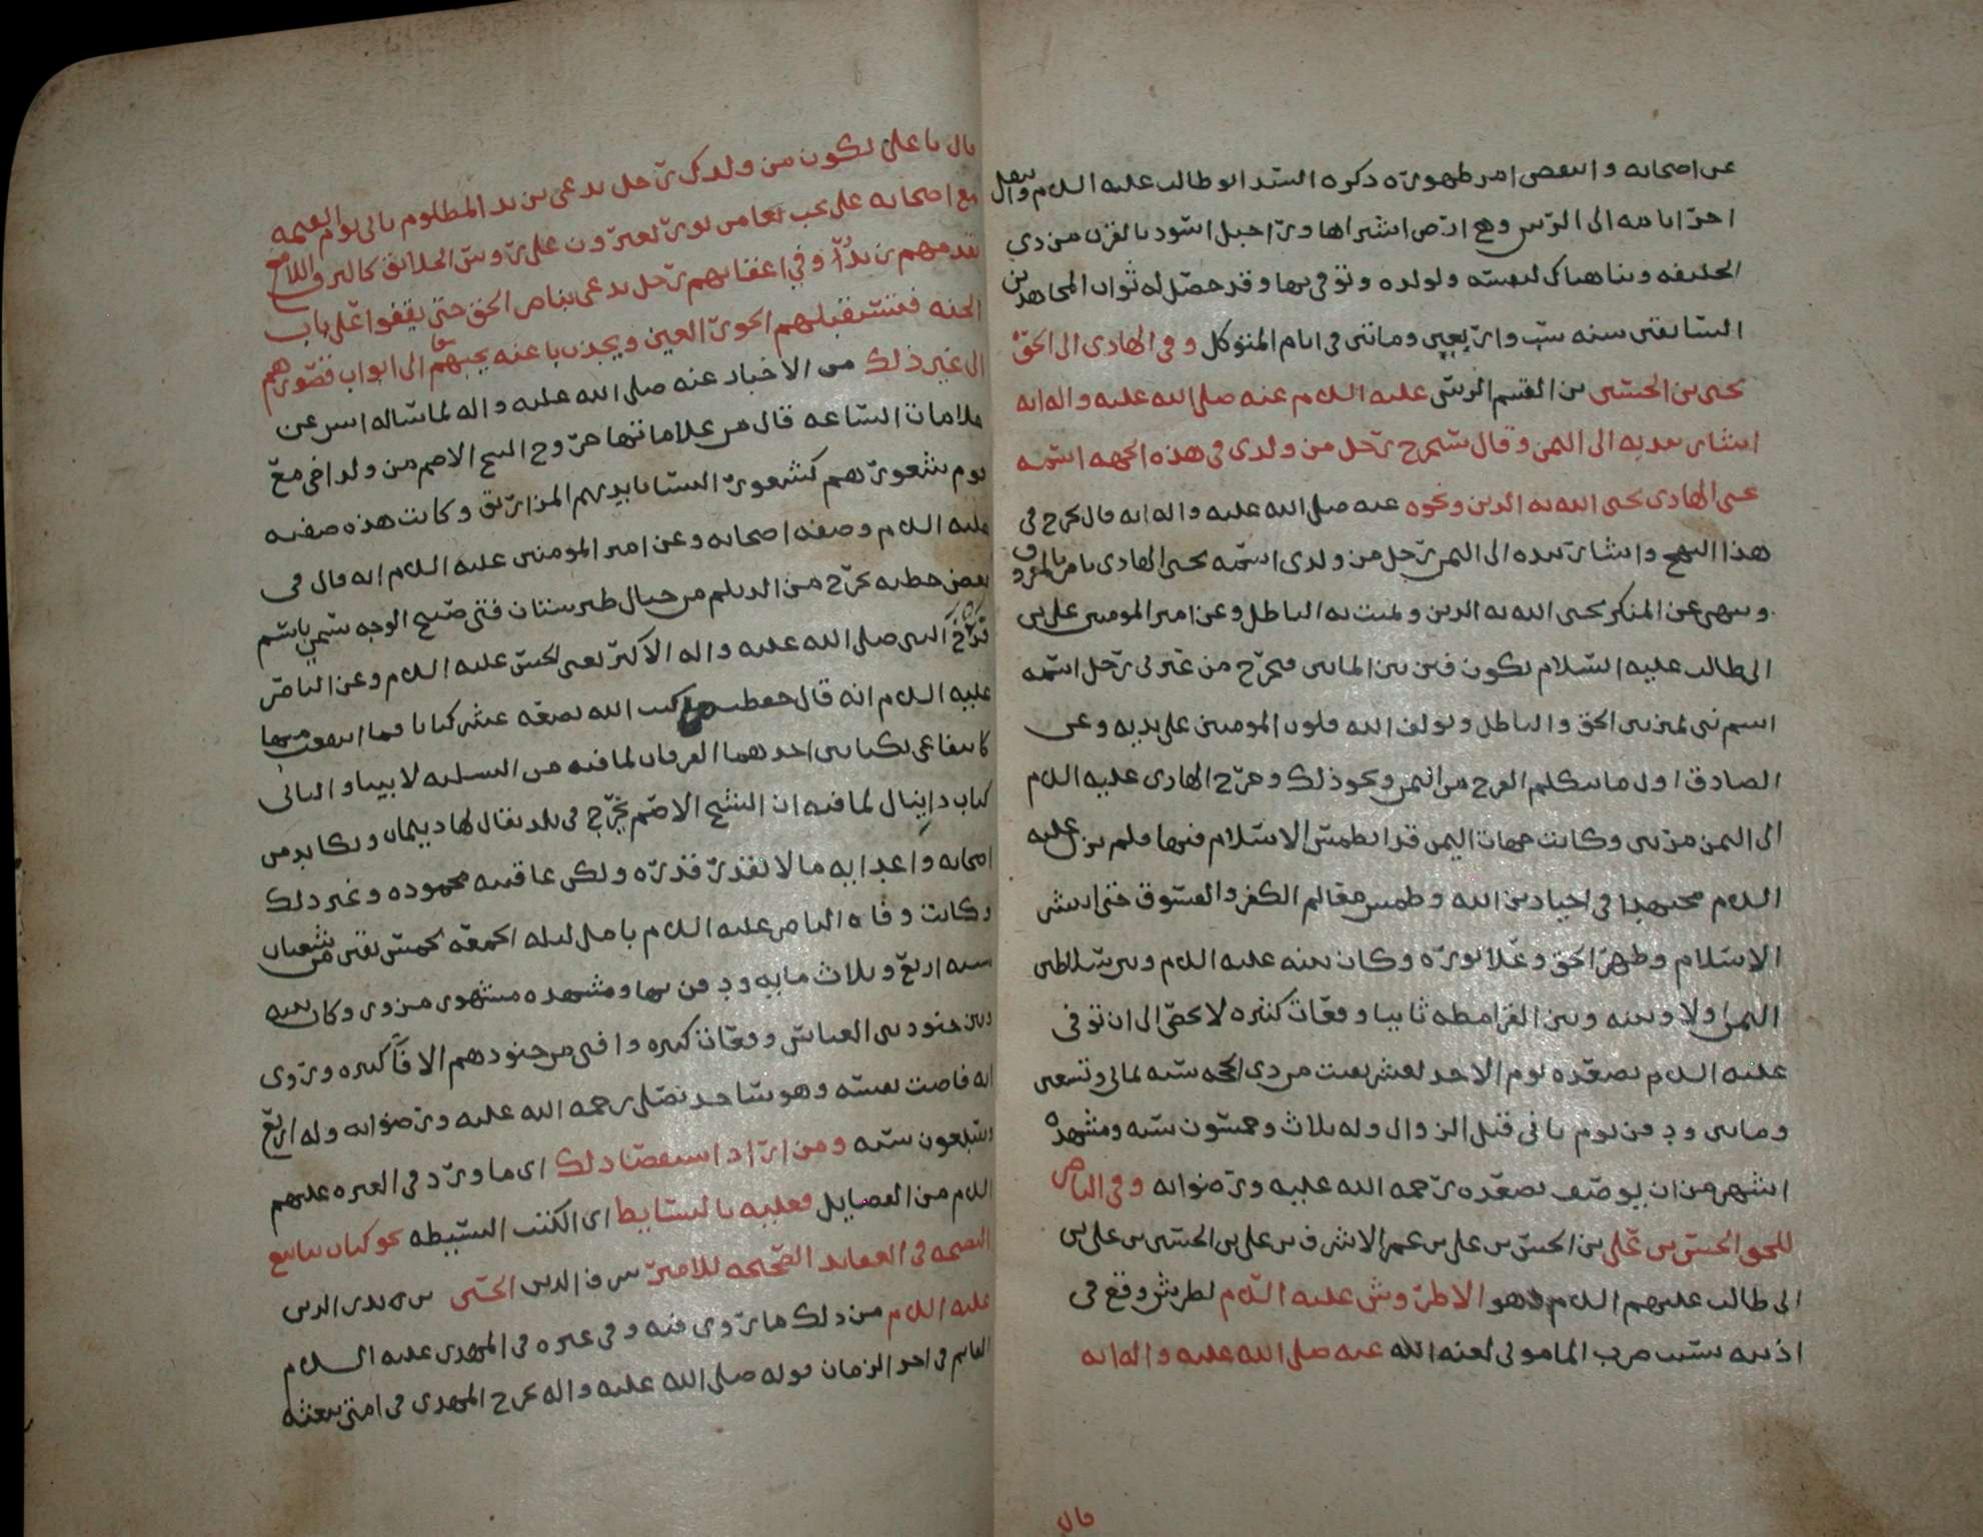 عن اصحابه وانتقص امر ظهوره ذكره السيد ابو طالب عليه السلم وانتقل
اخر ايامه الى الرس وهي ارض اشتراها ورا جبل اسود بالقرب من ذي
الحليفه وبنا هناك لنفسه ولولده وتوفي بها وقد حصل له ثواب المجاهدين
السابقين سنه ست واربعين وماتين في ايام المتوكل وفي الهادي الى الحق
يحيى بن الحسين بن القسم الرسي عليه السلم عنه صلى الله عليه واله انه
اشار بيده الى اليمن وقال سيخرج رجل من ولدي في هذه الجهه اسمه
يحيى الهادي يحيى الله به الدين ونحوه عنه صلى الله عليه واله انه قال يخرج في
هذا النهج واشار بيده الى اليمن رجل من ولدي اسمه يحيى الهادي يامر بالمعروف
وينهى عن المنكر يحيى الله به الدين ويميت به الباطل وعن امير المومنين علي بن
ابي طالب عليه السلام يكون فتن بين الماتين فيخرج من عترتي رجل اسمه
اسم نبي يميز بين الحق والباطل ويولف الله قلوب المومنين على يديه وعن
الصادق اول ما ياتيكم الفرج من اليمن ونحو ذلك وخرج الهادي عليه السلم
الى اليمن مرتين وكانت جهات اليمن قد انطمس الاسلام فيها فلم يزل عليه
السلم مجتهدا في احيا دين الله وطمس معالم الكفر والفسوق حتى انتشر
الاسلام وظهر الحق وعلا نوره وكان بينه عليه السلم وبين سلاطين
اليمن اولا وبينه وبين القرامطه ثانيا وقعات كثيره لا تحصى الى ان توفي
عليه السلم بصعده يوم الاحد لعشر بقيت من ذي الحجه سنه ثماني وتسعين
وماتين ودفن يوم ثاني قبل الزوال وله ثلاث وخمسون سنه ومشهده
اشهر من ان يوصف بصعده رحمه الله عليه ورضوانه وفي الناصر
للحق الحسن بن علي بن الحسن بن علي بن عمر الاشرف بن علي بن الحسين بن علي بن
ابي طالب عليهم السلم وهو الاطروش عليه السلم لطرش وقع في
اذنيه بسبب ضرب المامون لعنه الله عنه صلى الله عليه واله انه
قال
قال يا علي يكون من ولدك رجل يدعى بن يد المظلوم ياتي يوم القيمه
مع اصحابه على نجب تعبرون على روس الخلائق كالبرق اللامع
يقدمهم زيد وفي اعقابهم رجل يدعى بناصر الحق حتى يقفوا على باب
الجنه فتستقبلهم الحور العين ويجذب باعنه نجبهم الى ابواب قصورهم
الى غير ذلك من الاخبار عنه صلى الله عليه واله لما ساله انس عن
علامات الساعه قال من علاماتها خروج الشيخ الاصم من ولد اخي مع
قوم شعورهم كشعور النسا بايديهم المزاريق وكانت هذه صفته
عليه السلم وصفه اصحابه وعن امير المومنين عليه السلم انه قال في
بعض خطبه يخرج من الديلم من جبال طبرستان فتى صبيح الوجه يسمى باسم
فرخ النبي صلى الله عليه واله الاكبر يعني الحسن عليه السلم وعن الناصر
عليه السلم انه قال حفظت من كتب الله بضعه عشر كتابا فما انتفعت منها
كانتفاعي بكتابين احدهما الفرقان لما فيه من التسليه لابينا والثاني
كتاب دانيال لما فيه ان الشيخ الاصم يخرج في بلد يقال لها ديلمان ويكابد من
اصحابه واعدايه ما لا يقدر قدره ولكن عاقبته محموده وغير ذلك
وكانت وفاه الناصر عليه السلم بامل ليله الجمعه لخمس بقين من شعبان
سنه اربع وثلاث مايه ودفن بها ومشهده مشهور مزور وكان بينه
وبين جنود بني العباس وقعات كثيره وافنى من جنودهم الافا كثيره وروي
انه فاضت نفسه وهو ساجد يصلي رحمه الله عليه ورضوانه وله اربع
وسبعون سنه ومن اراد استقصا ذلك اي ما ورد في العتره عليهم
السلم من الفضايل فعليه بالبسايط اي الكتب البسيطه نحو كتاب ينابيع
النصيحه في العقايد الصحيحه للامير شرف الدين الحسين بن بدر الدين
عليه السلم من ذلك ما روي فيه وفي غيره في المهدي عليه السلام
القايم في اخر الزمان قوله صلى الله عليه واله يخرج المهدي في امتي يبعثه